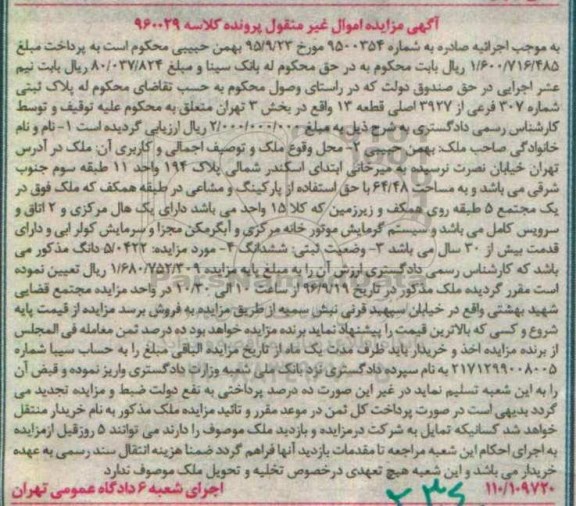 آگهی مزایده اموال غیر منقول پرونده کلاسه ۹۶۰۰۲۹
به موجب اجرائیه صادره به شماره ۹۵۰۰۳۵۴ مورخ ۹۵/۹/۲۳ بهمن حبیبی محکوم است به پرداخت مبلغ
۱/۶۰۰/۷۱۶/۴۸۵ ریال بابت محکوم به در حق محکوم له بانک سینا و مبلغ ۸۰/۰۳۷/۸۲۴ ریال بابت نیم
عشر اجرایی در حق صندوق دولت که در راستای وصول محکوم به حسب تقاضای محکوم له پلاک ثبتی
شماره ۳۰۷ فرعی از ۳۹۲۷ اصلی قطعه ۱۳ واقع در بخش ۳ تهران متعلق به محکوم علیه توقیف و توسط
کارشناس رسمی دادگستری به شرح ذیل به مبلغ ۲/۰۰۰/۰۰۰/۰۰۰ ریال ارزیابی گردیده است ۱- نام و نام
خانوادگی صاحب ملک: بهمن حبیبی ۲- محل وقوع ملک و توصیف اجمالی و کاربری آن: ملک در آدرس
تهران خیابان نصرت نرسیده به میرخانی ابتدای اسکندر شمالی پلاک ۱۹۴ واحد ۱۱ طبقه سوم جنوب
شرقی می باشد و به مساحت ۶۴/۴۸ با حق استفاده از پارکینگ و مشاعی در طبقه همکف که ملک فوق در
یک مجتمع ۵ طبقه روی همکف و زیرزمین که کلا ۱۵ واحد می باشد دارای یک هال مرکزی و ۲ اتاق و
سرویس کامل می باشد و سیستم گرمایش موتور خانه مرکزی و آبگرمکن مجزا و سرمایش کولر ابی و دارای
قدمت بیش از ۳۰ سال می باشد ۳- وضعیت ثبتی: ششدانگ ۴- مورد مزایده: ۵/۰۴۲۲ دانگ مذکور می
باشد که کارشناس رسمی دادگستری ارزش آن را به مبلغ پایه مزایده ۱/۶۸۰/۷۵۲/۳۰۹ ریال تعیین نموده
است مقرر گردیده ملک مذکور در تاریخ ۹۶/۷/۱۹ از ساعت ۱۰ الی ۱۰/۳۰ در واحد مزایده مجتمع قضایی
شهید بهشتی واقع در خیابان سپهبد قرنی نبش سمیه از طریق مزایده به فروش برسد مزایده از قیمت پایه
شروع و کسی که بالاترین قیمت را پیشنهاد نماید برنده مزایده خواهد بود ده درصد ثمن معامله فی المجلس
از برنده مزایده اخذ و خریدار باید ظرف مدت یک ماه از تاریخ مزایده الباقی مبلغ را به حساب سیبا شماره
۲۱۷۱۲۹۹۰۰۸۰۰۵ به نام سپرده دادگستری نزد بانک ملی شعبه وزارت دادگستری واریز نموده و قبض آن
را به این شعبه تسلیم نماید در غیر این صورت ده درصد پرداختی به نفع دولت ضبط و مزایده تجدید می
گردد بدیهی است در صورت پرداخت کل ثمن در موعد مقرر و تائید مزایده ملک مذکور به نام خریدار منتقل
خواهد شد کسانیکه تمایل به شرکت در مزایده و بازدید ملک موصوف را دارند می توانند ۵ روز قبل از مزایده
به اجرای احکام این شعبه مراجعه تا مقدمات بازدید آنها فراهم گردد ضمنا هزینه انتقال سند رسمی به عهده
خریدار می باشد و این شعبه هیچ تعهدی درخصوص تخلیه و تحویل ملک موصوف ندارد
۱۱۰/۱۰۹۷۲۰ اجرای شعبه ۶ دادگاه عمومی تهران